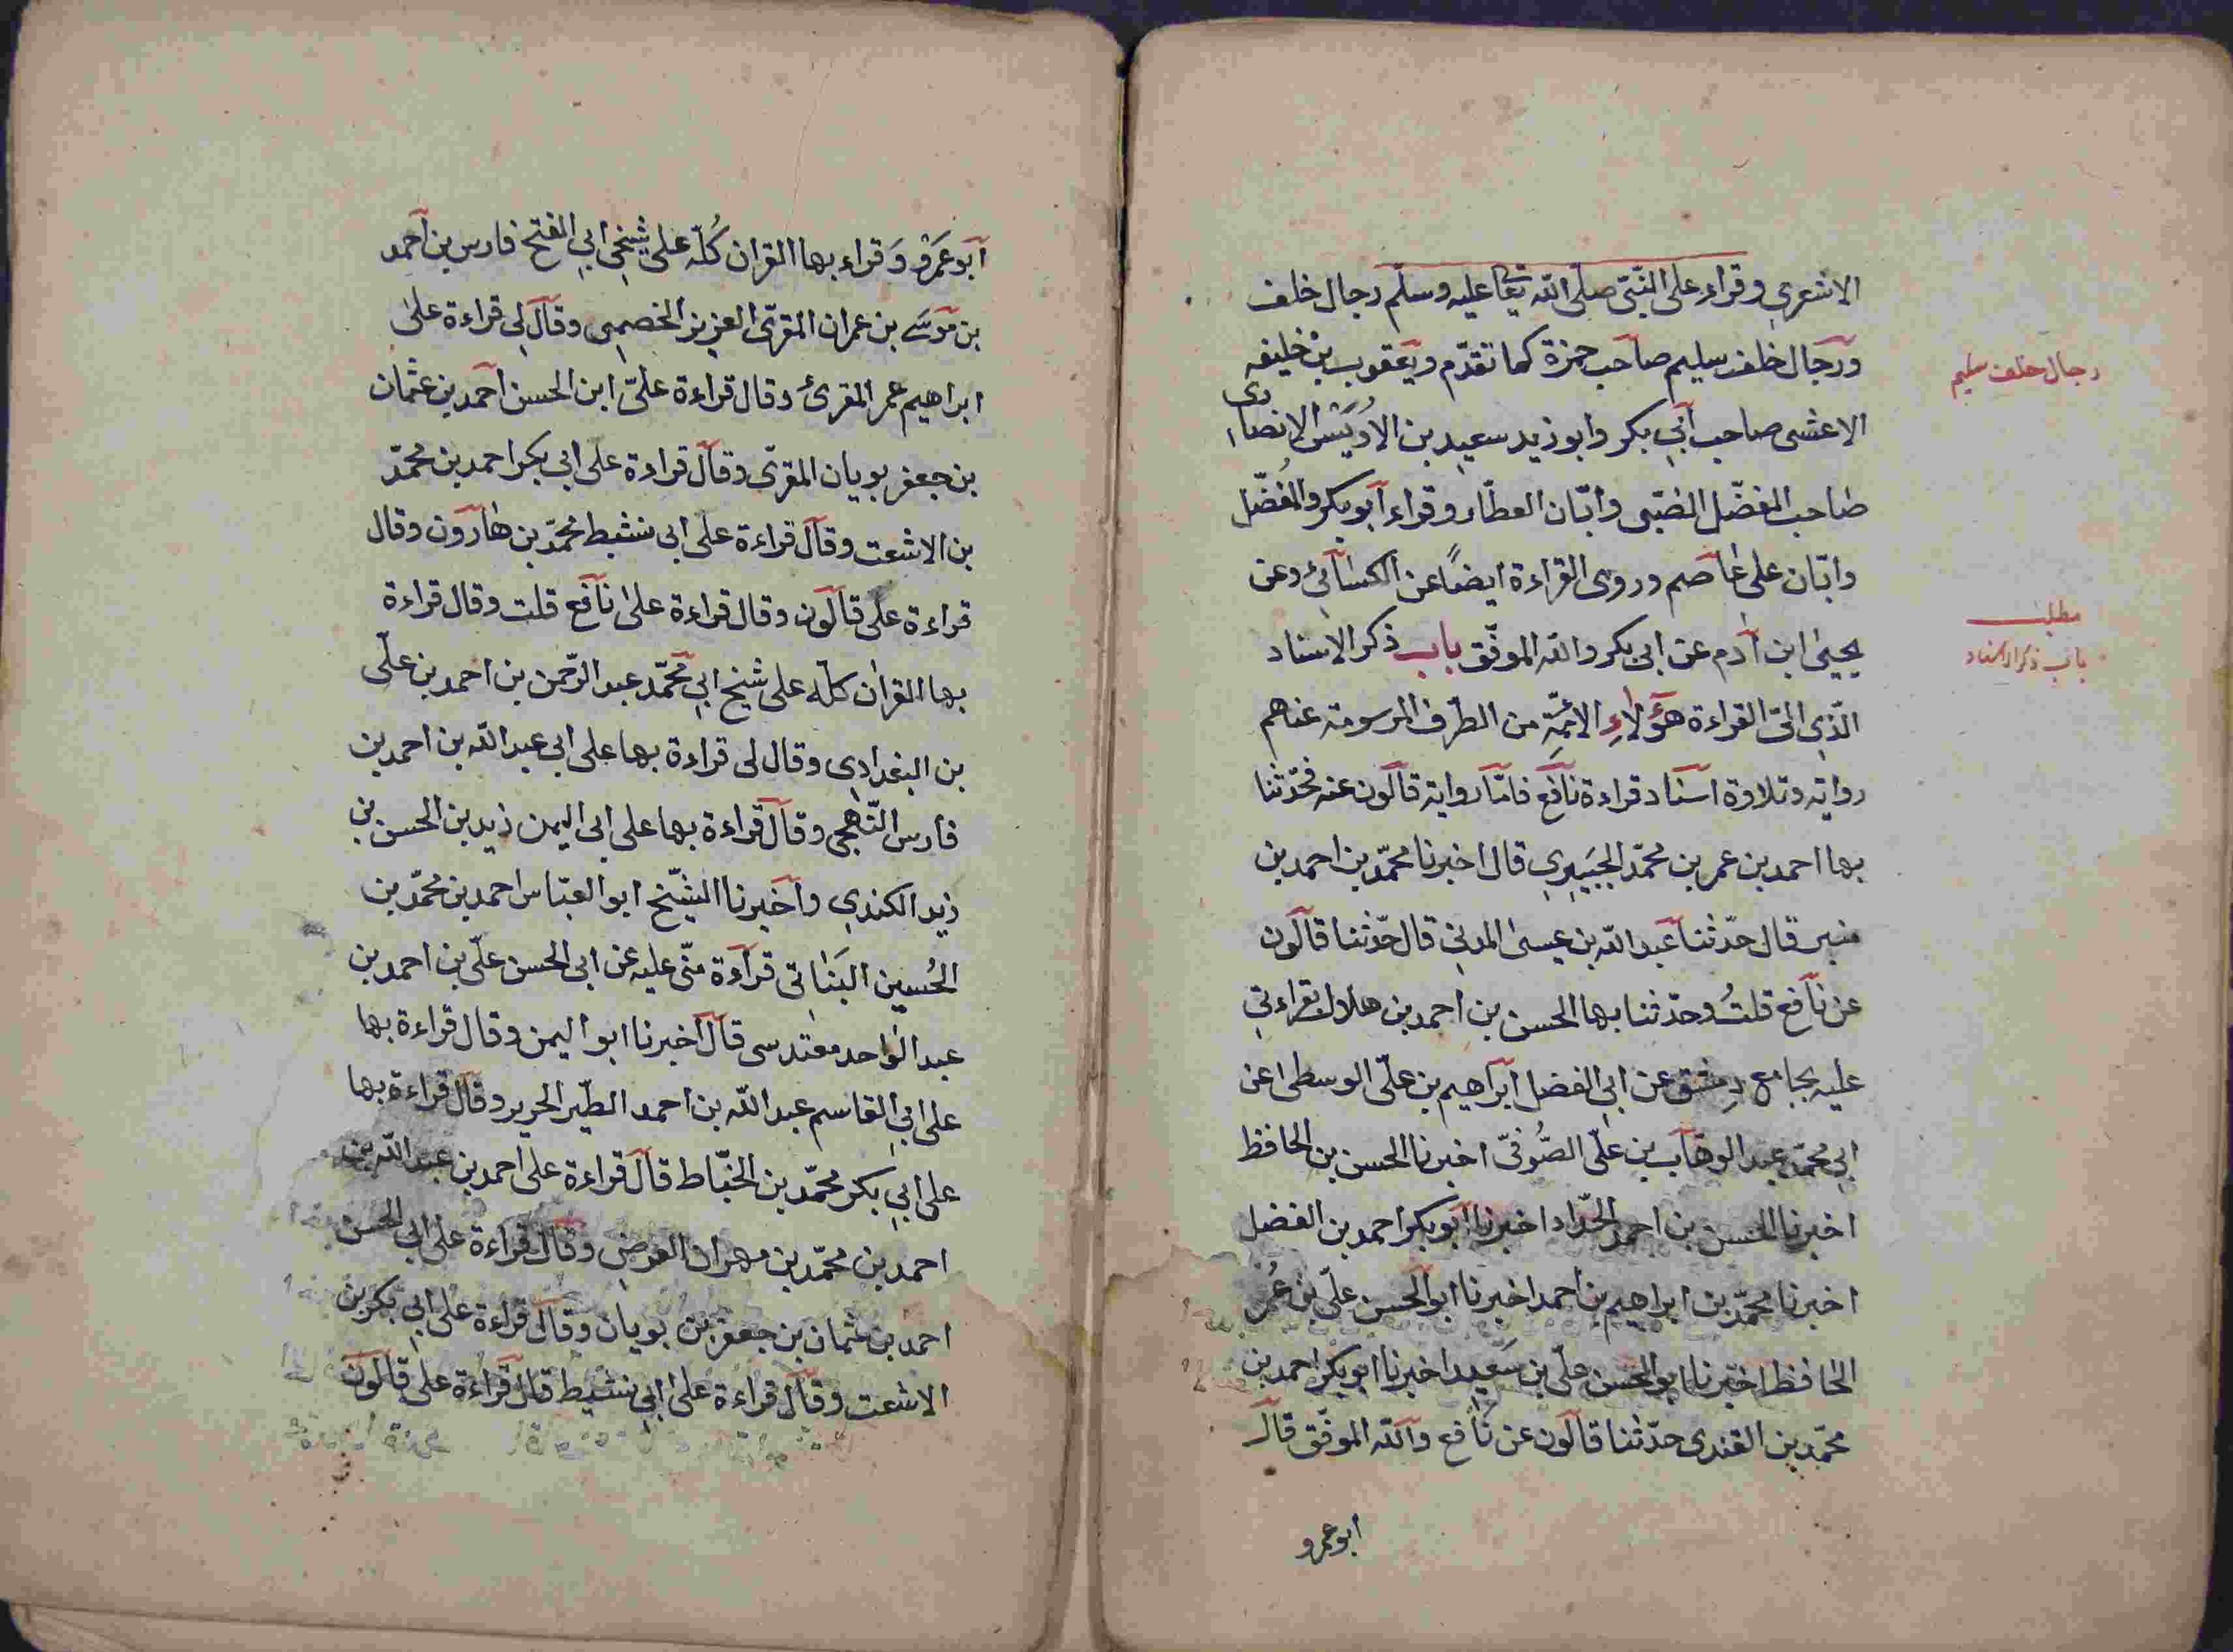 الاشعري وقراء على النّبيّ صلّى الله تعالى عليه وسلّم رجال خلف
ورجال خلف سليم صاحب حمزة كما تقدّم ويعقوب بن خليفه
رجال خلف سليم
الاعشى صاحب أبي بكر وابو زيد سعيد بن الأوَيْسْ الانصاري
صاحب المفضّل الضّبّى وابّان العطّار وقراء أبو بكر والمُفضّل
وابّان على عاصم وروى القراءة ايضاً عن الكسائي وعن
يحيى ابن آدم عن ابى بكر والله الموفّق باب ذكر الاسناد
مطلب
باب ذكر الاسناد
الّذي الىّ القراءة هؤلاءِ الائمّةِ من الطرف المرسومة عنهم
روايه وتلاوة اسناد قراءة نافع فامّا رواية قالون عنه فحدّثنا
بها احمد بن عمر بن محمّد الجبيري قال اخبرنا محمّد بن احمد بن
منير قال حدّثنا عبد الله بن عيسى المدني قال حدّثنا قالون
عن نافع قلتُ وحدّثنا بها الحسن بن احمد بن هلال بقراءتي
عليه بجامع دِمشق عن ابي الفضل ابراهيم بن علىّ الوسطى عن
ابي محمّد عبد الوهّاب بن علىّ الصُّوفىّ اخبرنا الحسن بن الحافظ
اخبرنا الحسن بن احمد الحدّاد اخبرنا ابو بكر احمد بن الفضل
اخبرنا محمّد بن ابراهيم بن احمد اخبرنا ابو الحسن علىّ بن عُمر
الحافظ اخبرنا ابو الحسن علىّ بن سَعيد اخبرنا ابو بكر احمد بن
محمّد بن القندى حدّثنا قالون عن نافع والله الموفّق قال
ابو عمرو
أبو عَمرو وَقراء بها القران كُلّه على شيخى ابي الفتح فارس بن احمد
بن موسَى بن عمران المقرئ العزيز الخصمى وقال لى قراءة على
ابراهيم عمر المقرئ وقال قراءة علىّ ابن الحسن احمد بن عثمان
بن جعفر بويان المقرئ وقال قراءة على ابي بكر احمد بن محمّد
بن الاشعت وقال قراءة على ابى نشيط محمّد بن هارون وقال
قراءة على قالون وقال قراءة على نافع قلت وقال قراءة
بها القران كلّه على شيخ ابي محمّد عبد الرّحمن بن احمد بن علّى
بن البغدادى وقال لى قراءة بها على ابى عبد الله بن احمد بن
فارس التّهجى وقال قراءة بها على ابى اليمن زيد بن الحسن بن
زيد الكندي واخبرنا الشّيخ ابو العبّاس احمد بن محمّد بن
الحُسين البَناتى قراءة منّى عليه عن ابى الحسن علّى بن احمد بن
عبد الواحد مقتدسى قال اخبرنا ابو اليمن وقال قراءة بها
على ابي القاسم عبد الله بن احمد الطّير الحرير وقال قراءة بها
على ابي بكر محمّد بن الخيّاط قال قراءة على احمد بن عبد الله بن
احمد بن محمّد بن مهران الفرضى وقال قراءة على ابي الحسن
احمد بن عثمان بن جعفر بن بويان وقال قراءة على ابي بكر بن
الاشعت وقال قراءة على ابي نشيط قال قراءة على قالون